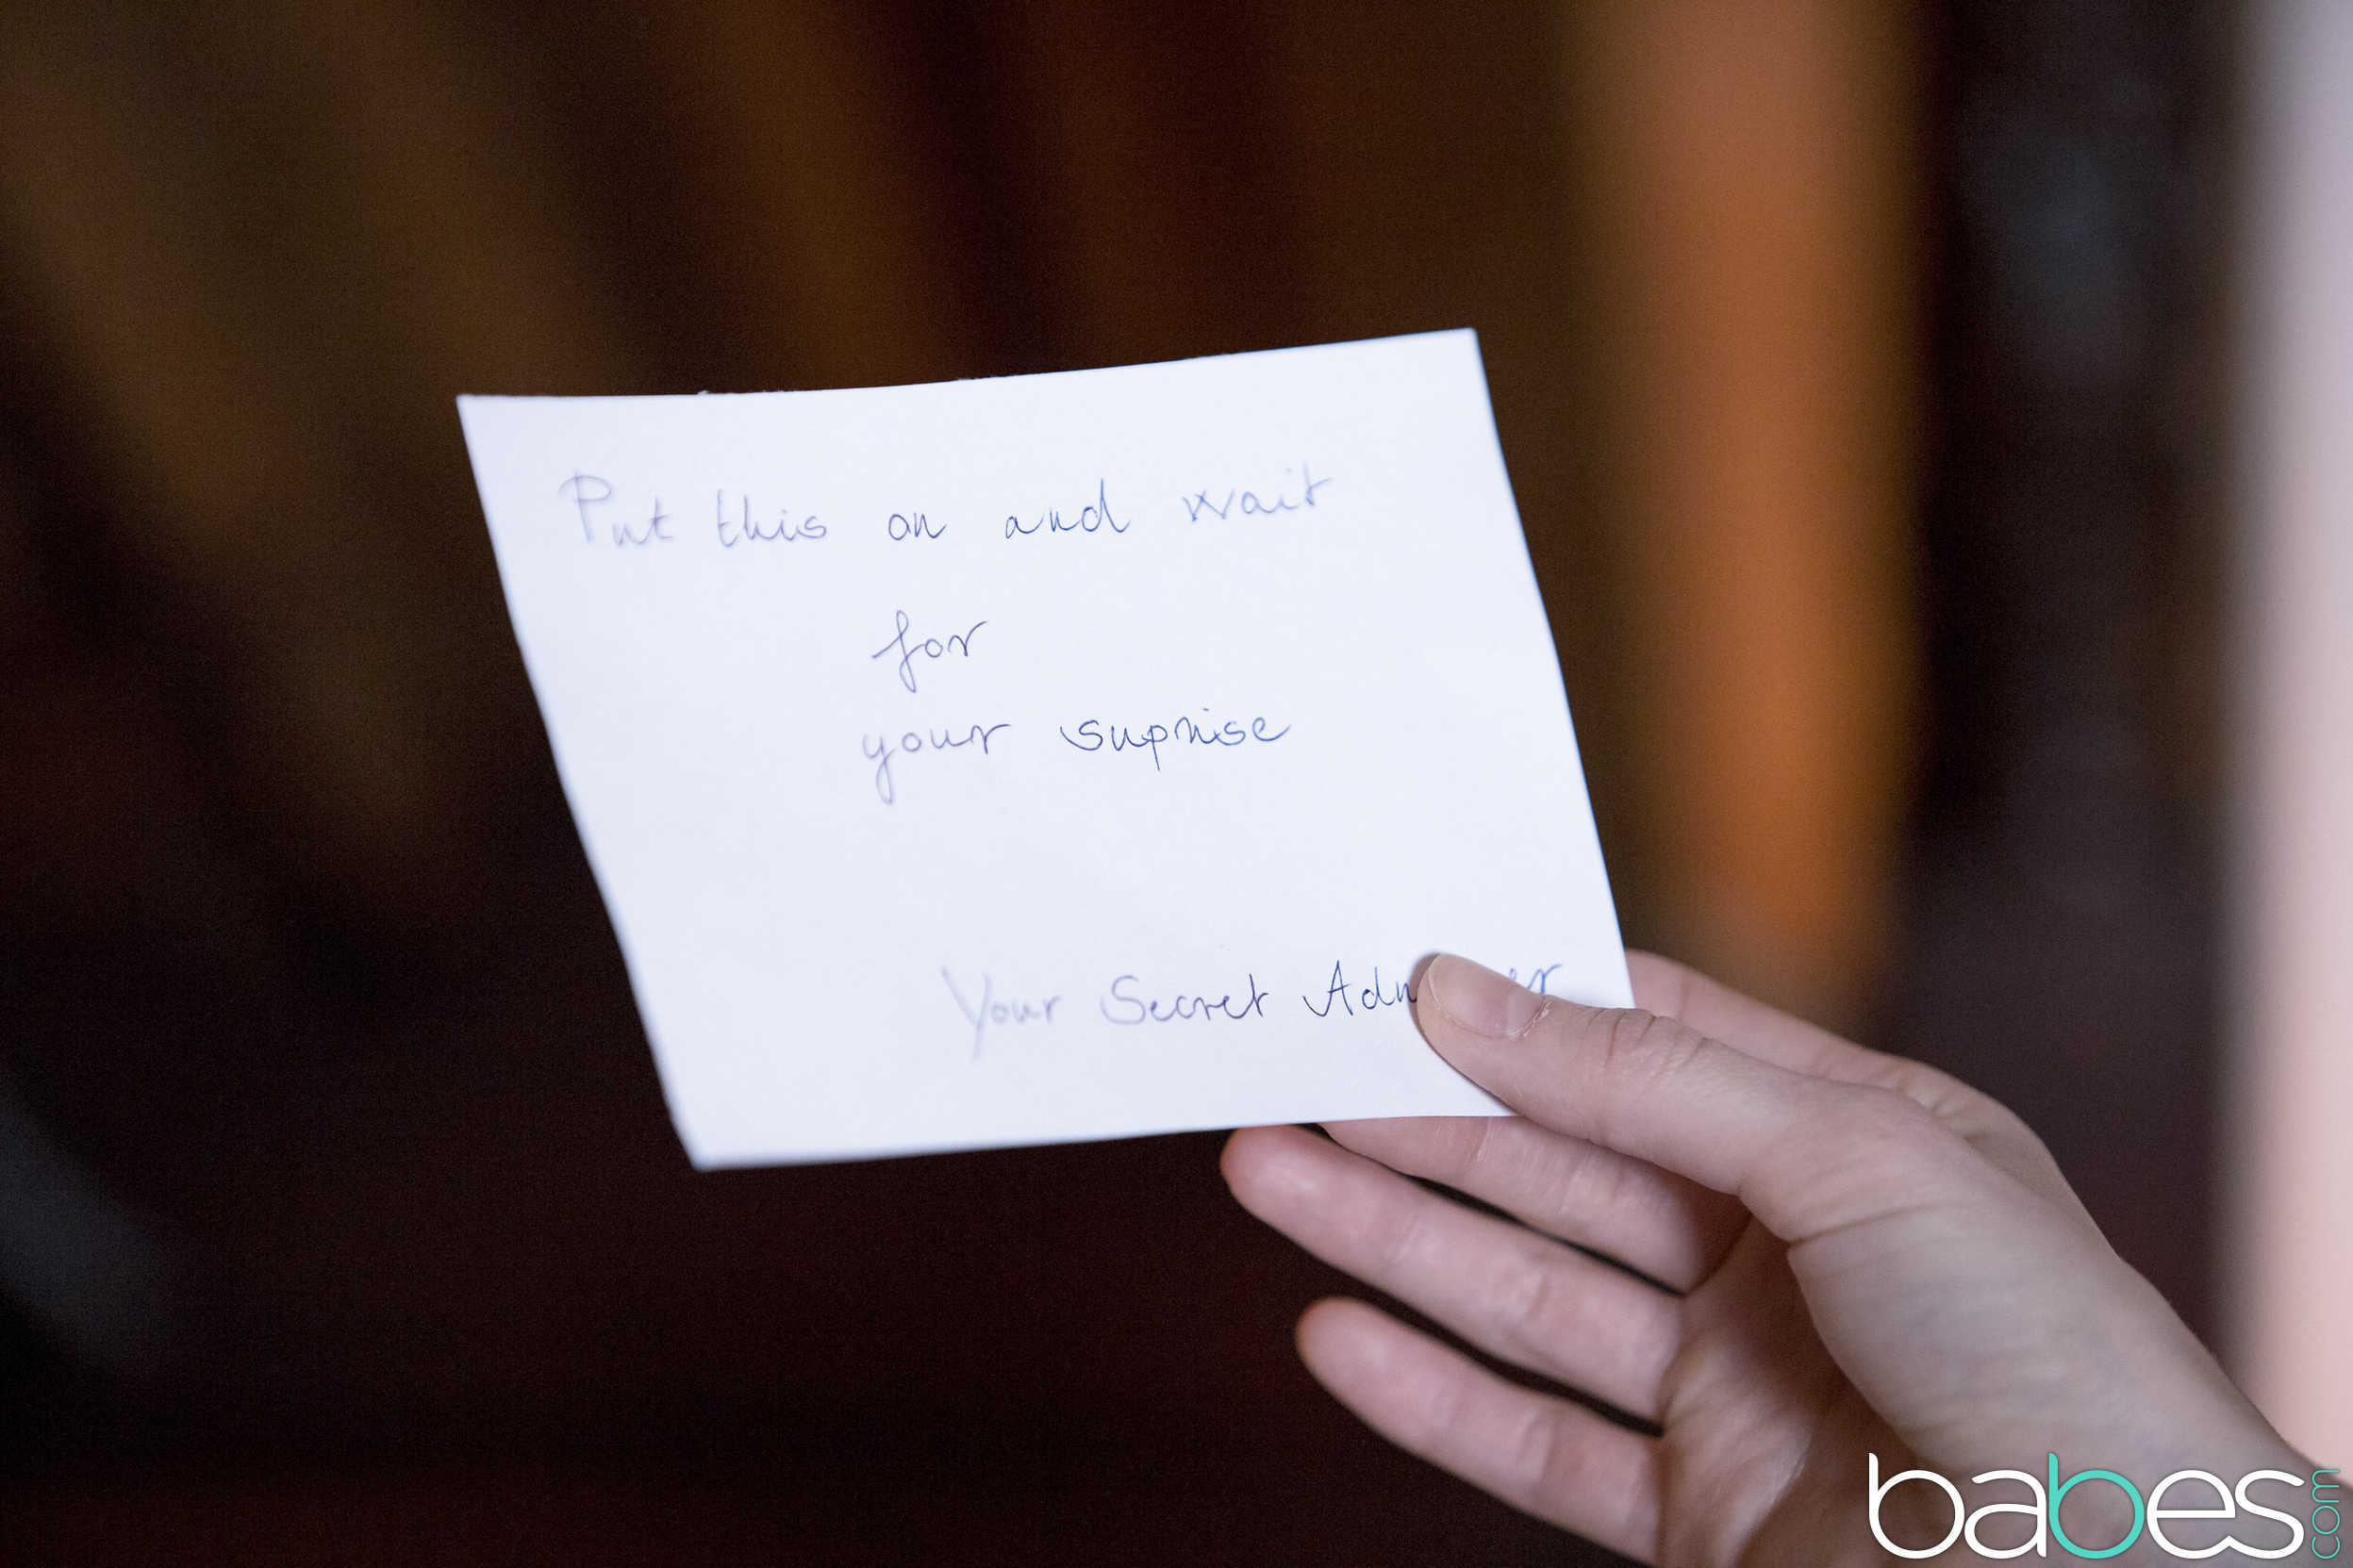 Put this on and wait
for
your suprise
Your Secret
babes.com